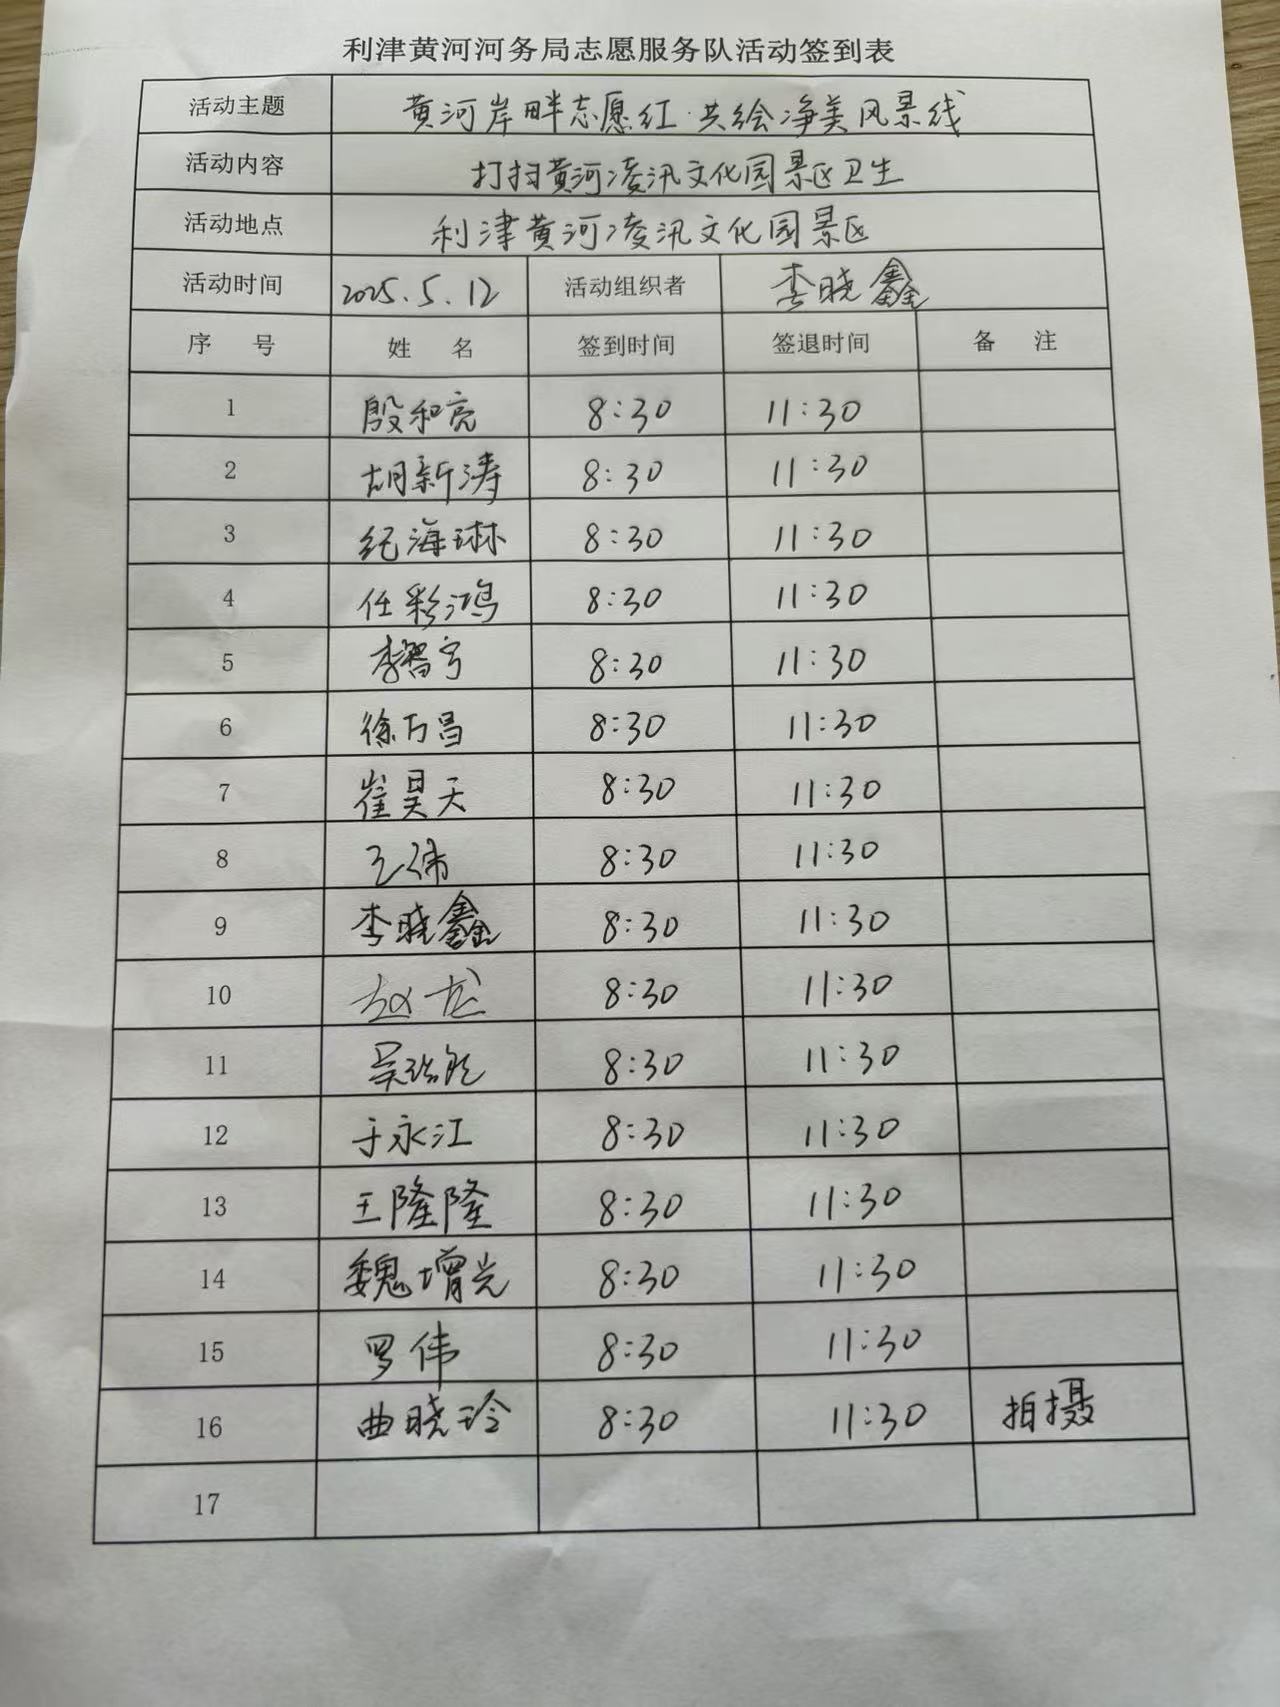 利津黄河河务局志愿服务队活动签到表
活动主题 黄河岸畔志愿红·共绘净美风景线
活动内容 打扫黄河凌汛文化园景区卫生
活动地点 利津黄河凌汛文化园景区
活动时间 2025.5.12 活动组织者 李晓鑫
序 号 姓 名 签到时间 签退时间 备 注
1 殷和亮 8:30 11:30
2 胡新涛 8:30 11:30
3 纪海琳 8:30 11:30
4 任彩鸿 8:30 11:30
5 李智宁 8:30 11:30
6 徐万昌 8:30 11:30
7 崔昊天 8:30 11:30
8 王伟 8:30 11:30
9 李晓鑫 8:30 11:30
10 赵龙 8:30 11:30
11 8:30 11:30
12 于永江 8:30 11:30
13 王隆隆 8:30 11:30
14 魏增光 8:30 11:30
15 罗伟 8:30 11:30
16 曲晓玲 8:30 11:30 拍摄
17